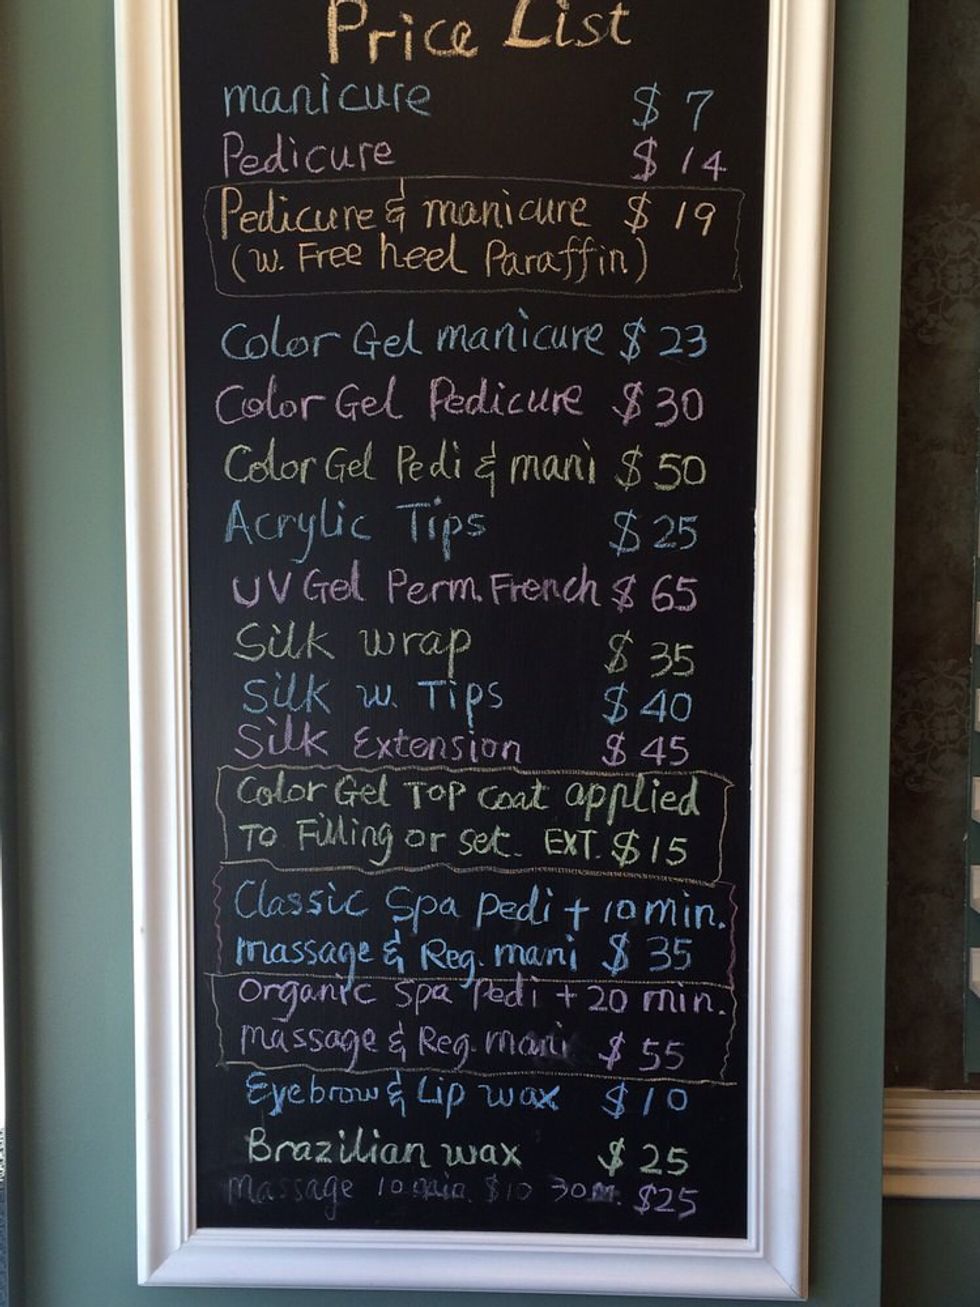 Price List
manicure $ 7
Pedicure $ 14
Pedicure & manicure $ 19
(w. Free heel Paraffin)
Color Gel manicure $ 23
Color Gel Pedicure $ 30
Color Gel Pedi & mani $ 50
Acrylic Tips $ 25
UV Gel Perm. French $ 65
Silk wrap $ 35
Silk w. Tips $ 40
Silk Extension $ 45
Color Gel TOP coat applied
TO Filling or set. EXT. $ 15
Classic Spa pedi + 10 min.
massage & Reg. mani $ 35
Organic Spa Pedi + 20 min.
massage & Reg. mani $ 55
Eyebrow & Lip wax $ 10
Brazilian wax $ 25
massage 10 min. $10 30m. $25